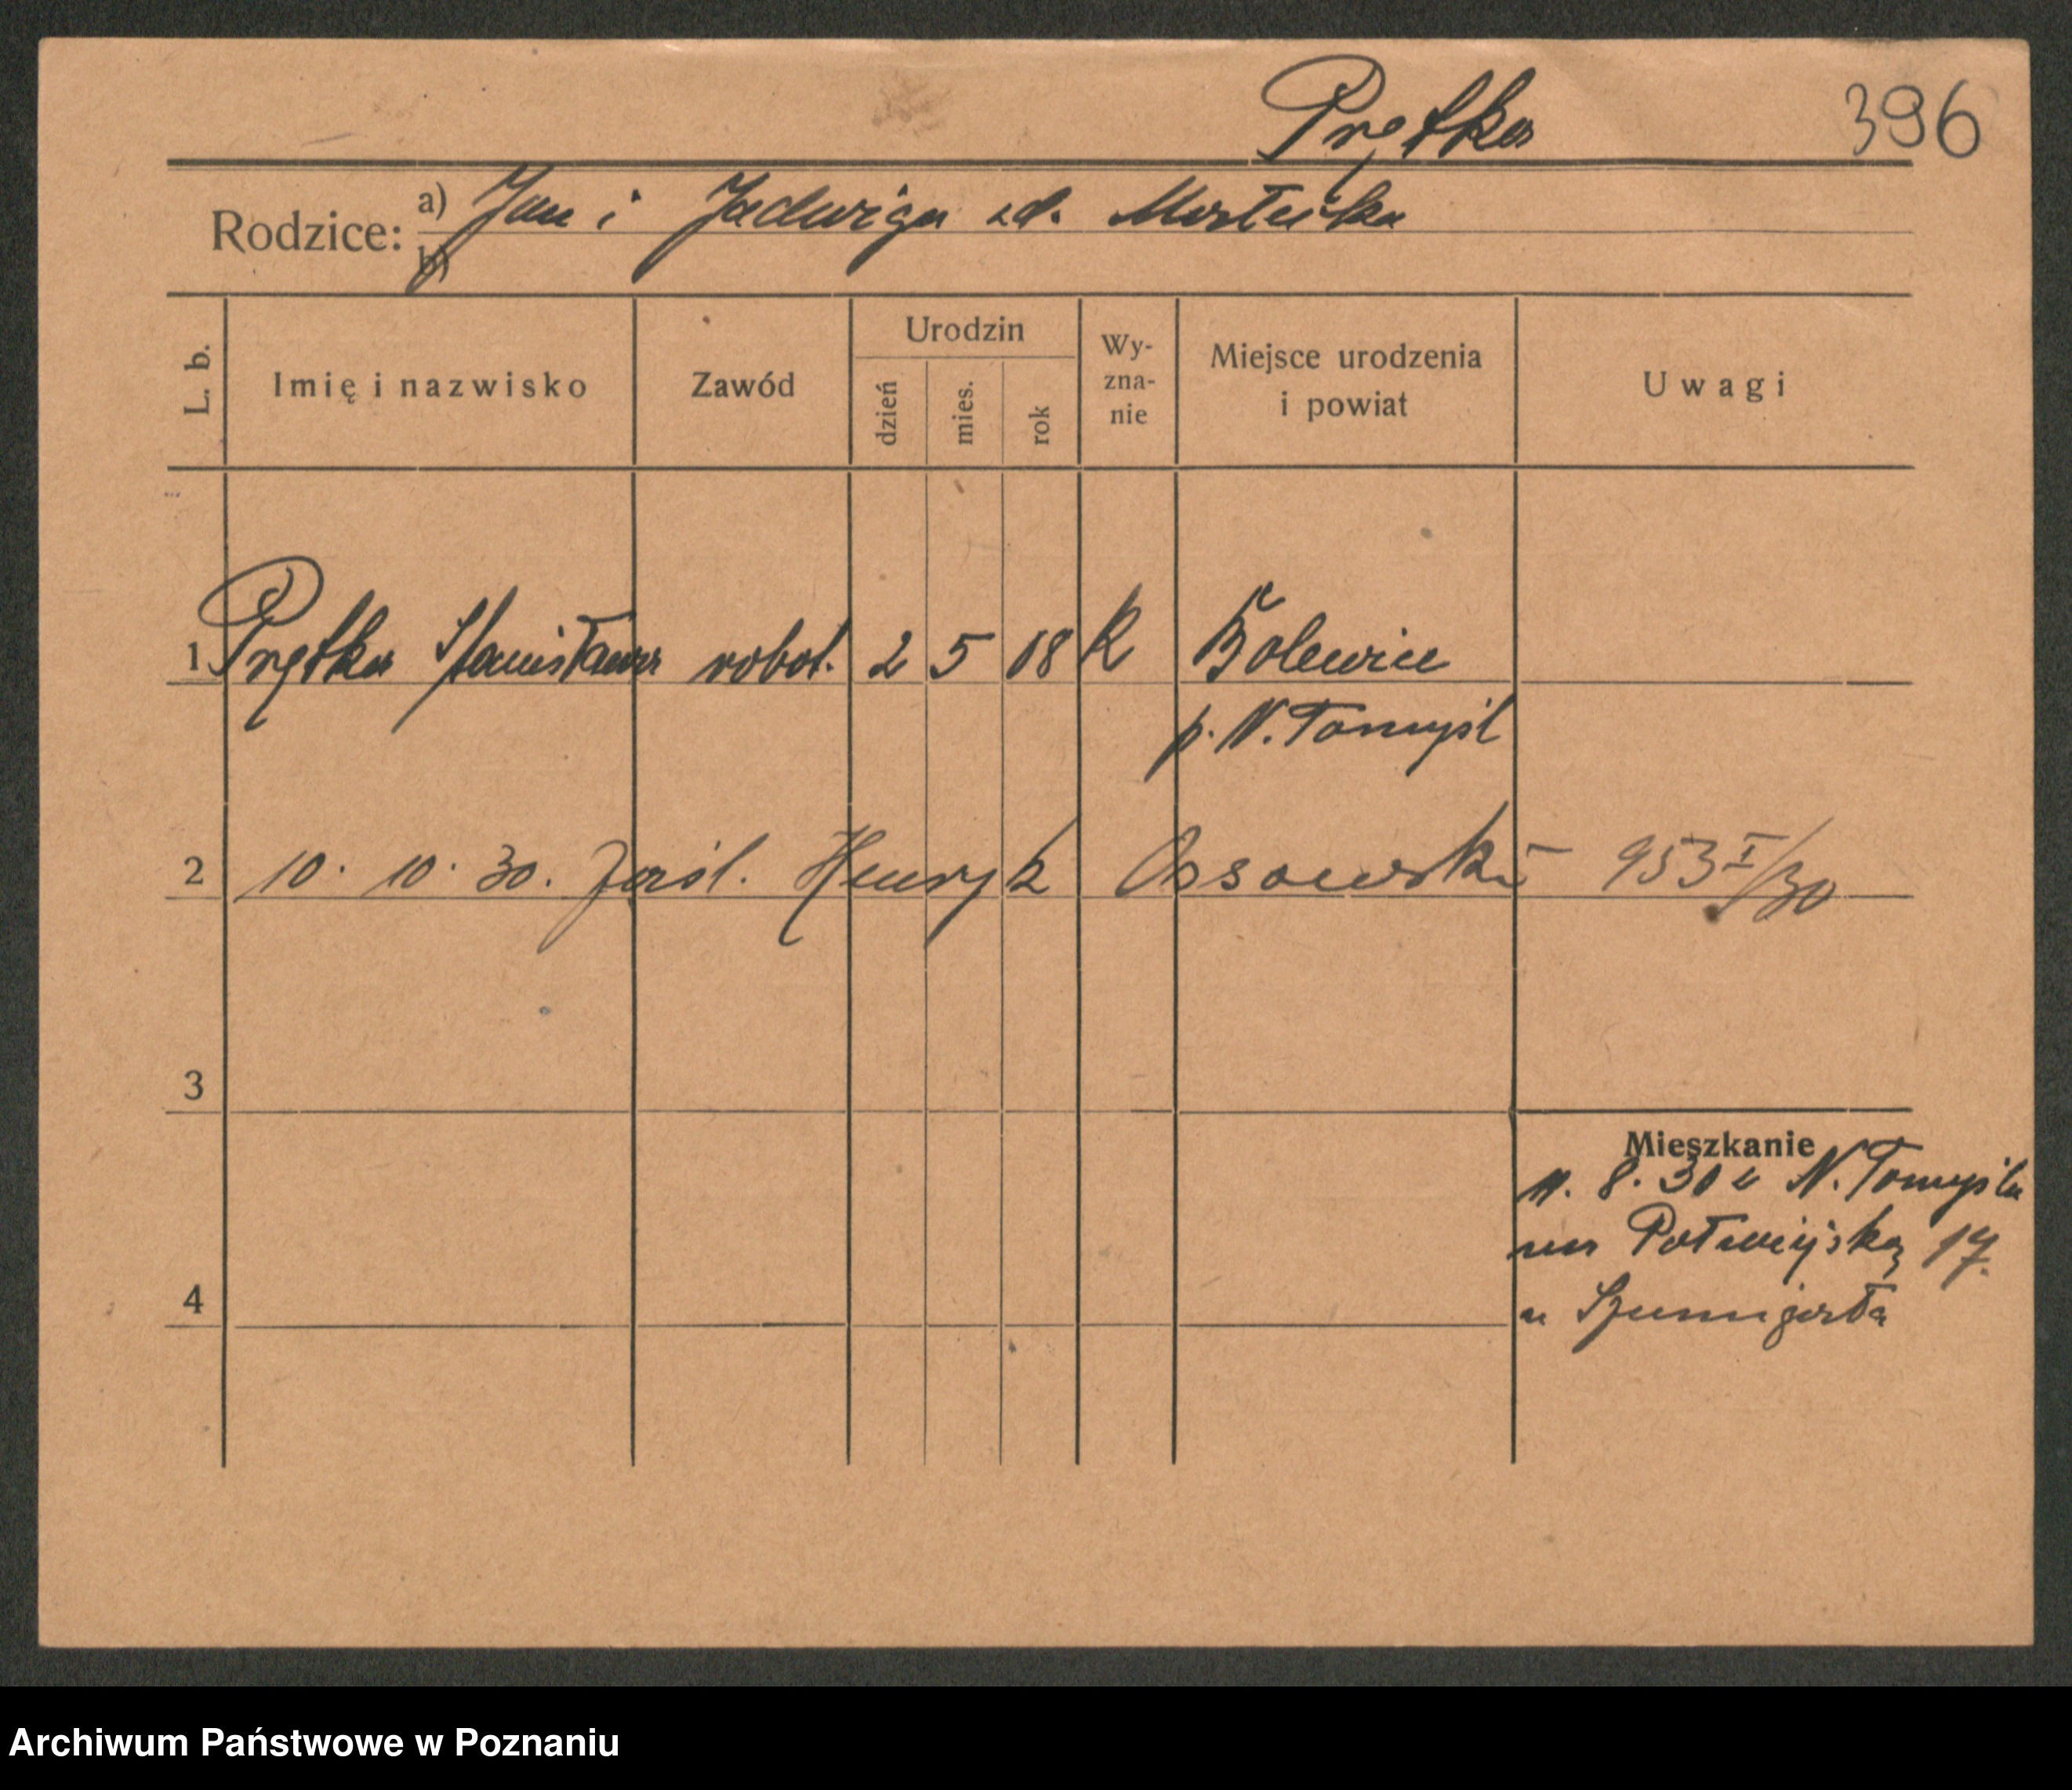 Prętka 396
Rodzice: a) Jan i Jadwiga zd.
b)
L. b. Imię i nazwisko Zawód Urodzin dzień mies. rok Wy-zna-nie Miejsce urodzenia i powiat Uwagi
1 Prętka Stanisława robot. 2 5 08 K Bolewice
p. N. Tomyśl
2 10. 10. 30. Henryk Ossowski 953 I/30
3
Mieszkanie
11. 8. 30 z N. Tomyśla
na Półwiejską 17.
4 u
Archiwum Państwowe w Poznaniu